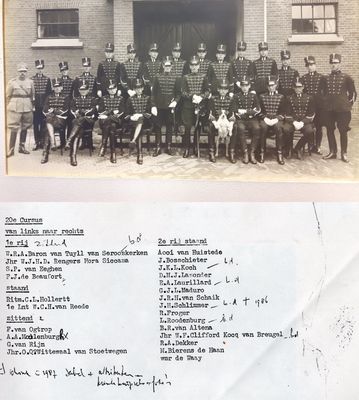 20e Cursus
van links naar rechts
1e rij zittend
W.R.A.Baron van Tuyll van Serooskerken
Jhr W.J.H.D. Rengers Hora Siccama
S.P. van Eeghen
P.J.de Beaufort
staand
Ritm.C.L.Hollertt
1e Lnt W.C.H.van Reede
zittend
F.van Ogtrop
A.A.Moolenburgh
G.van Rijn
Jhr.O.Q?Wittewaal van Stoetwegen
2e rij staand
Aooi van Ruistede
J.Bosschieter
J.K.L.Koch
D.H.J.Lasonder
E.A.Laurillard
G.J.L.Maduro
J.R.H.van Schaik
J.H.Schlimmer + 1986
R.Froger
L.Roodenburg
B.R.van Altena
Jhr W.F.Clifford Kocq van Breugel
R.A.Dekker
M.Bierens de Haan
van de Waay